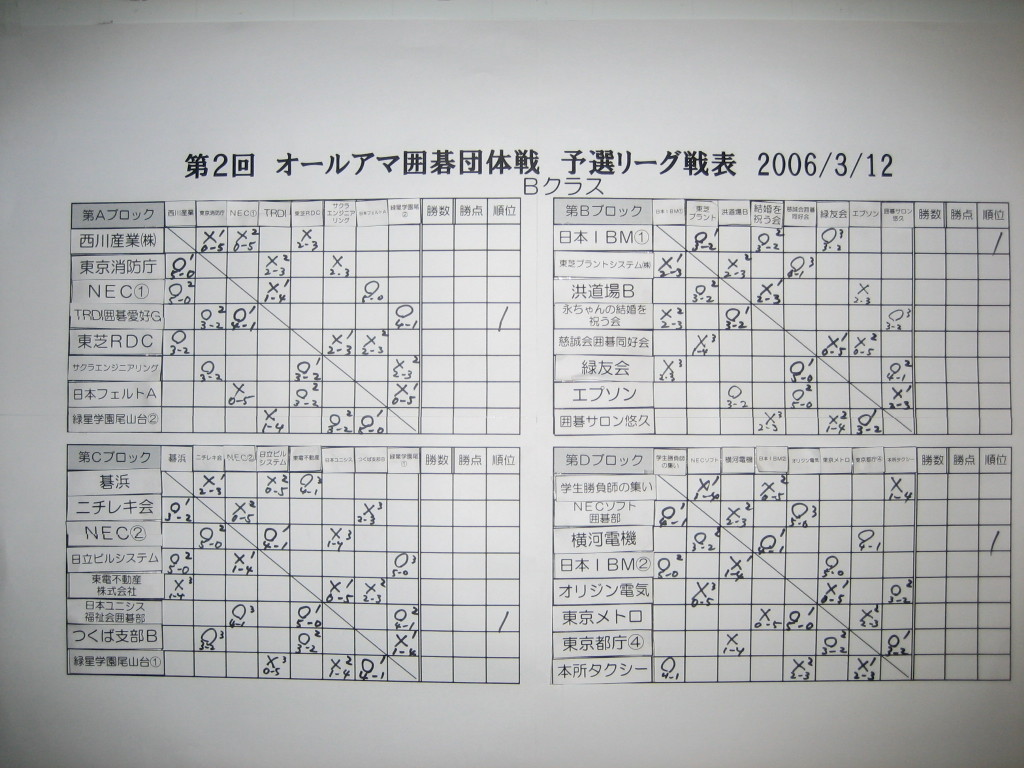 第2回 オールアマ囲碁団体戦 予選リーグ戦表 2006/3/12
Bクラス
第Aブロック 西川産業 東京消防庁 NEC① TRDI 東芝RDC サクラエンジニアリング 緑星学園尾② 勝数 勝点 順位
西川産業㈱ X1 0-5 X2 0-5 X3 2-3
東京消防庁 O1 5-0 X2 2-3 X3 2-3
NEC① O2 5-0 X1 1-4 O3 5-0
TRDI囲碁愛好G O2 3-2 O1 4-1 O3 4-1 1
東芝RDC O3 3-2 X1 2-3 X2 2-3
サクラエンジニアリング O2 3-2 O1 3-2 X3 2-3
日本フェルトA X3 0-5 O2 3-2 X1 0-5
緑星学園尾山台② X3 1-4 O2 3-2 O1 5-0
第Bブロック 日本IBM① 東芝プラント 洪道場B 結婚を祝う会 慈誠会囲碁同好会 緑友会 エプソン 囲碁サロン悠久 勝数 勝点 順位
日本IBM① O1 3-2 O2 3-2 O3 3-2 1
東芝プラントシステム㈱ X1 2-3 X2 2-3 O3
洪道場B O2 3-2 X1 2-3 X 2-3
永ちゃんの結婚を祝う会 X2 2-3 O1 3-2 O3 3-2
慈誠会囲碁同好会 X3 1-4 X1 0-5 X2 0-5
緑友会 X3 2-3 O1 5-0 O2 4-1
エプソン O 3-2 O2 5-0 X1 2-3
囲碁サロン悠久 X3 2-3 X2 1-4 O1 3-2
第Cブロック 碁浜 ニチレキ会 NEC② 日立ビルシステム 東電不動産 日本ユニシス つくば支部B 緑星学園尾① 勝数 勝点 順位
碁浜 X1 2-3 X2 0-5 O3 4-1
ニチレキ会 O1 3-2 X2 0-5 X3 2-3
NEC② O2 5-0 O1 4-1 X3 1-4
日立ビルシステム O2 5-0 X1 1-4 O3 5-0
東電不動産株式会社 X3 1-4 X1 0-5 X2 2-3
日本ユニシス福祉会囲碁部 O3 4-1 O1 5-0 O2 4-1 1
つくば支部B O3 O2 3-2 X1 1-4
緑星学園尾山台① X3 0-5 X2 1-4 O1 4-1
第Dブロック 学生勝負師の集い NECソフト 横河電機 日本IBM② オリジン電気 東京メトロ 東京都庁④ 本所タクシー 勝数 勝点 順位
学生勝負師の集い X1 X2 0-5 X 1-4
NECソフト囲碁部 O1 4-1 X2 2-3 O3 5-0
横河電機 O2 3-2 O1 4-1 O 4-1 1
日本IBM② O2 5-0 X1 1-4 O 5-0
オリジン電気 X3 0-5 X1 0-5 O2 3-2
東京メトロ X 0-5 O1 5-0 X2 2-3
東京都庁④ X 1-4 O2 3-2 O1 3-2
本所タクシー O 4-1 X2 2-3 X1 2-3